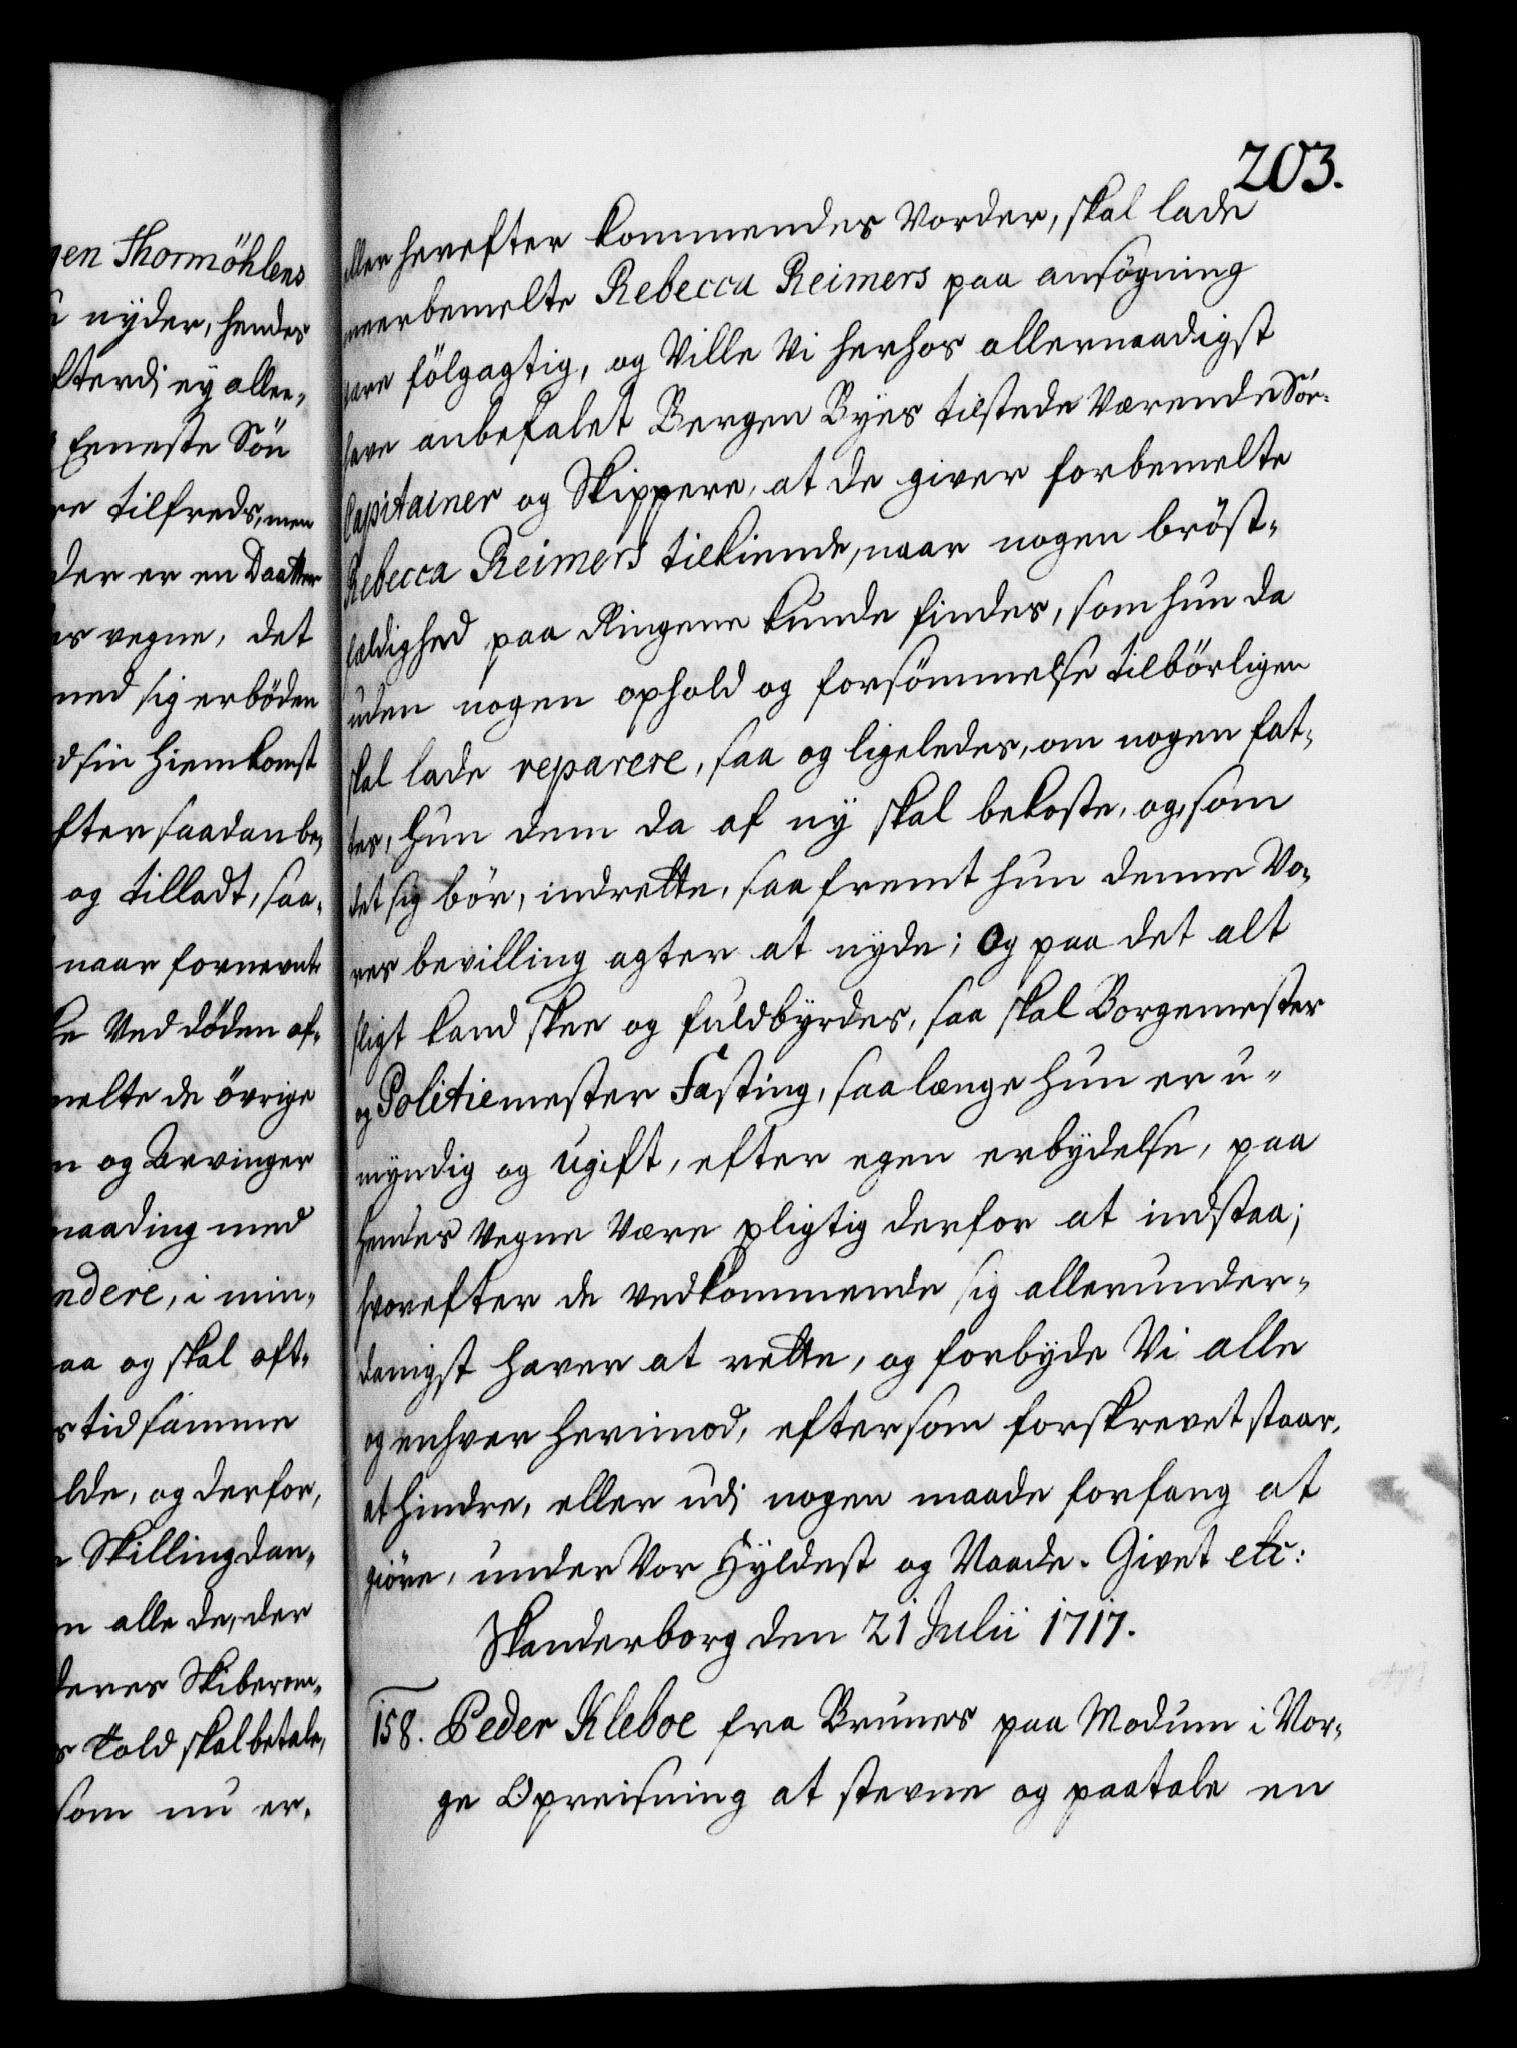 203.
gen Thormöhlens
nyder, hendes
efterdi ey allee,
Eeneste Sön
re tilfreds, men
der er en Daatter
es vegne, det
med sig erböden
d sin hiemkomst
fter saadan be,
og tilladt, saa,
naar fornevnte
Ved döden af,
melte de övrige
n og Arvinger
naading med
ndere, i min,
aa og skal oft,
s tid samme
lde, og derfor,
Skilling dan,
n alle de, der
deres Skiberom,
s Told skal betale,
som nu er,
eller herefter kommendes Vorder, skal lade
meerbemelte Rebecca Reimers paa ansögning
være fölgagtig, og Ville Vi herhos allernaadigst
have anbefalet Bergen Byes tilstede Værende Sör,
Capitainer og Skippere, at de giver forbemelte
Rebecca Reimers tilkiende, naar nogen bröst,
fældighed paa Ringene kunde findes, som hun da
uden nogen ophold og forsömmelse tilbörligen
skal lade reparere, saa og ligeledes, om nogen fat,
tes, hun dem da af ny skal bekoste, og, som
det sig bör, indrette, saafremt hun denne Vo,
res bevilling agter at nyde; Og paa det alt
sligt kand skee og fuldbyrdes, saa skal Borgemester
og Politiemester Fasting, saalænge hun er u,
myndig og ugift, efter egen erbydelse, paa
hendes Vegne Være pligtig derfor at indstaa;
hvorefter de vedkommende sig allerunder,
danigst haver at rette, og forbyde Vi alle
og enhver herimod, eftersom forskrevet staar,
at hindre, eller udi nogen maade forfang at
giöre, under Vor Hyldest og Naade. Givet etc:
Skanderborg den 21 Julii 1717.
158. Peder Kleboe fra Brunes paa Modum i Nor,
ge Opreisning at stevne og paatale en